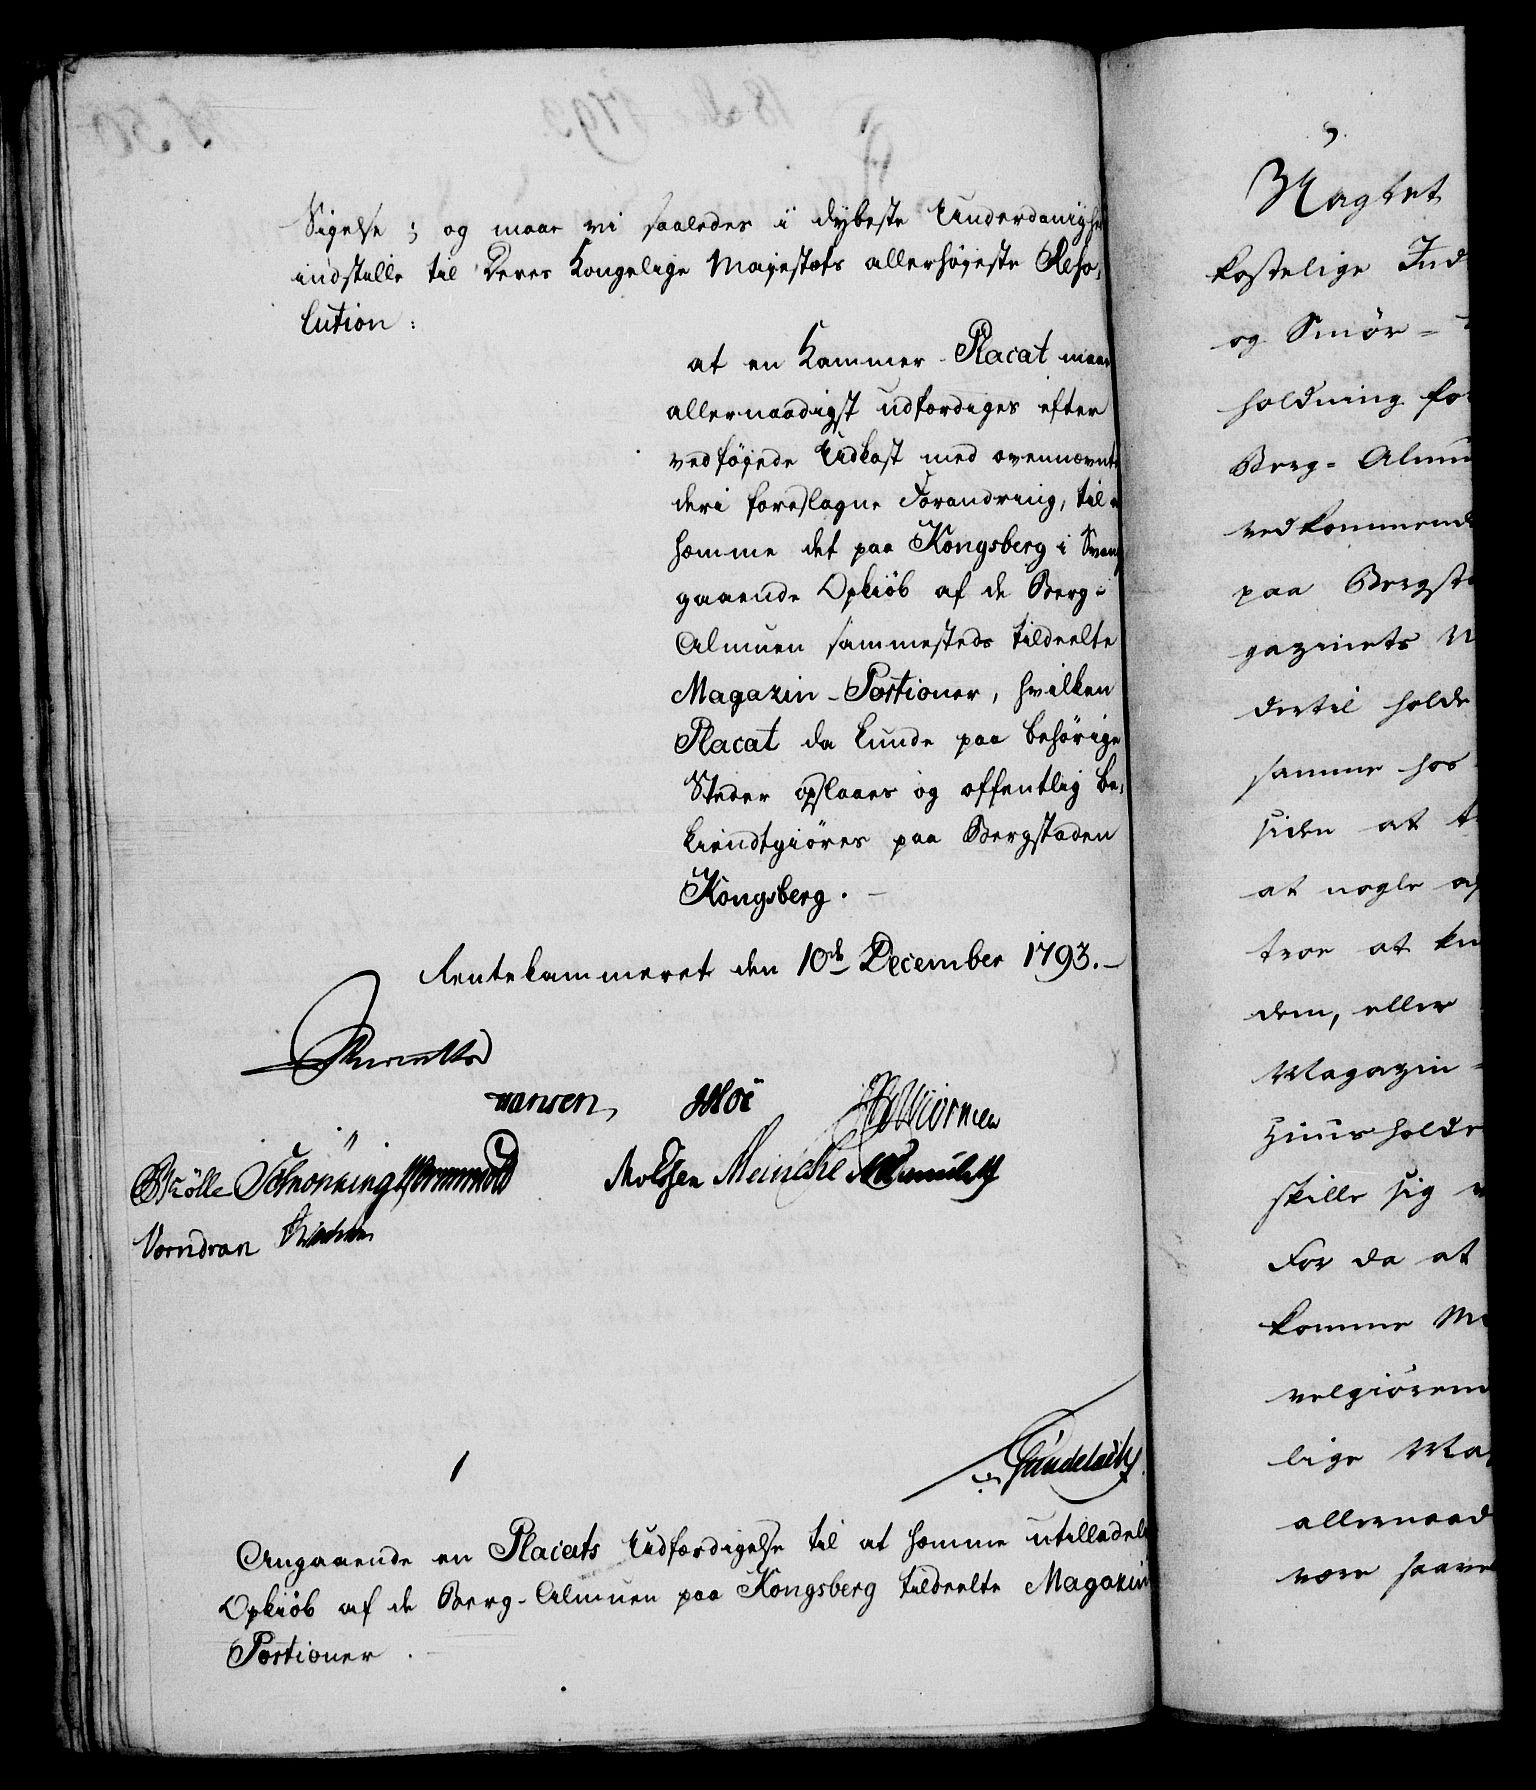 Sigelse; og maae vi saaledes i dybeste Underdanighe
indstille til Deres Kongelige Majestæts allerhøjeste Reso-
lution:
at en Kammer-Placat maae
allernaadigst udfærdiges efter
vedføjede Udkast med ovennævnte
deri foreslagne Forandring, til at
hæmme det paa Kongsberg i Svang
gaaende Opkiöb af de Berg-
Almuen sammesteds tildeelte
Magazin-Portioner, hvilken
Placat da kunde paa behörige
Steder opslaaes og offentlig be-
kiendtgiöres paa Bergstaden
Kongsberg.
Rentekammeret den 10de December 1793.
Hansen
Schönning Wormskiold
Meincke
Vorndran
Gundelach
Angaaende en Placats Udfærdigelse til at hæmme utilladel
Opkiöb af de Berg-Almuen paa Kongsberg tildeelte Magazin
Portioner.
Magtet
kostelige Ind
og Smör-
holdning for
Berg-Almu
vedkommende
paa Bergsta
gazinets
dertil holde
samme hos
siden at
at nogle af
troe at
dem, eller
Magazin-
ziins holde
skille sig
For da at
komme
velgiören
lige Ma
allernaad
være saavel